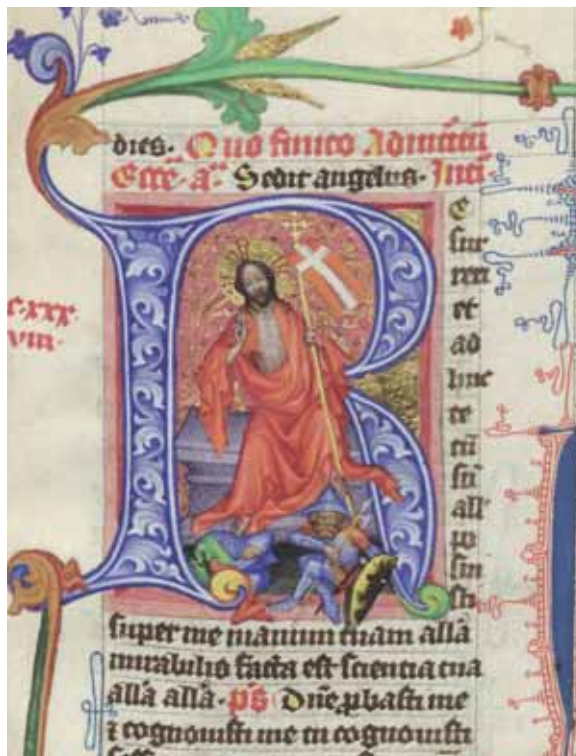 dies. Quo finito Ad mittitū
Ecce a. Sedit angelus. Intī
R
e
sur
rexi
et
ad
huc
te
cū
sū
all
po
sui
sti
c. xxx.
viii.
super me manum tuam alla
mirabilis facta est sciencia tua
alla alla. ps Dn̄e ꝓbasti me
⁊ cognouisti me tu cognouisti